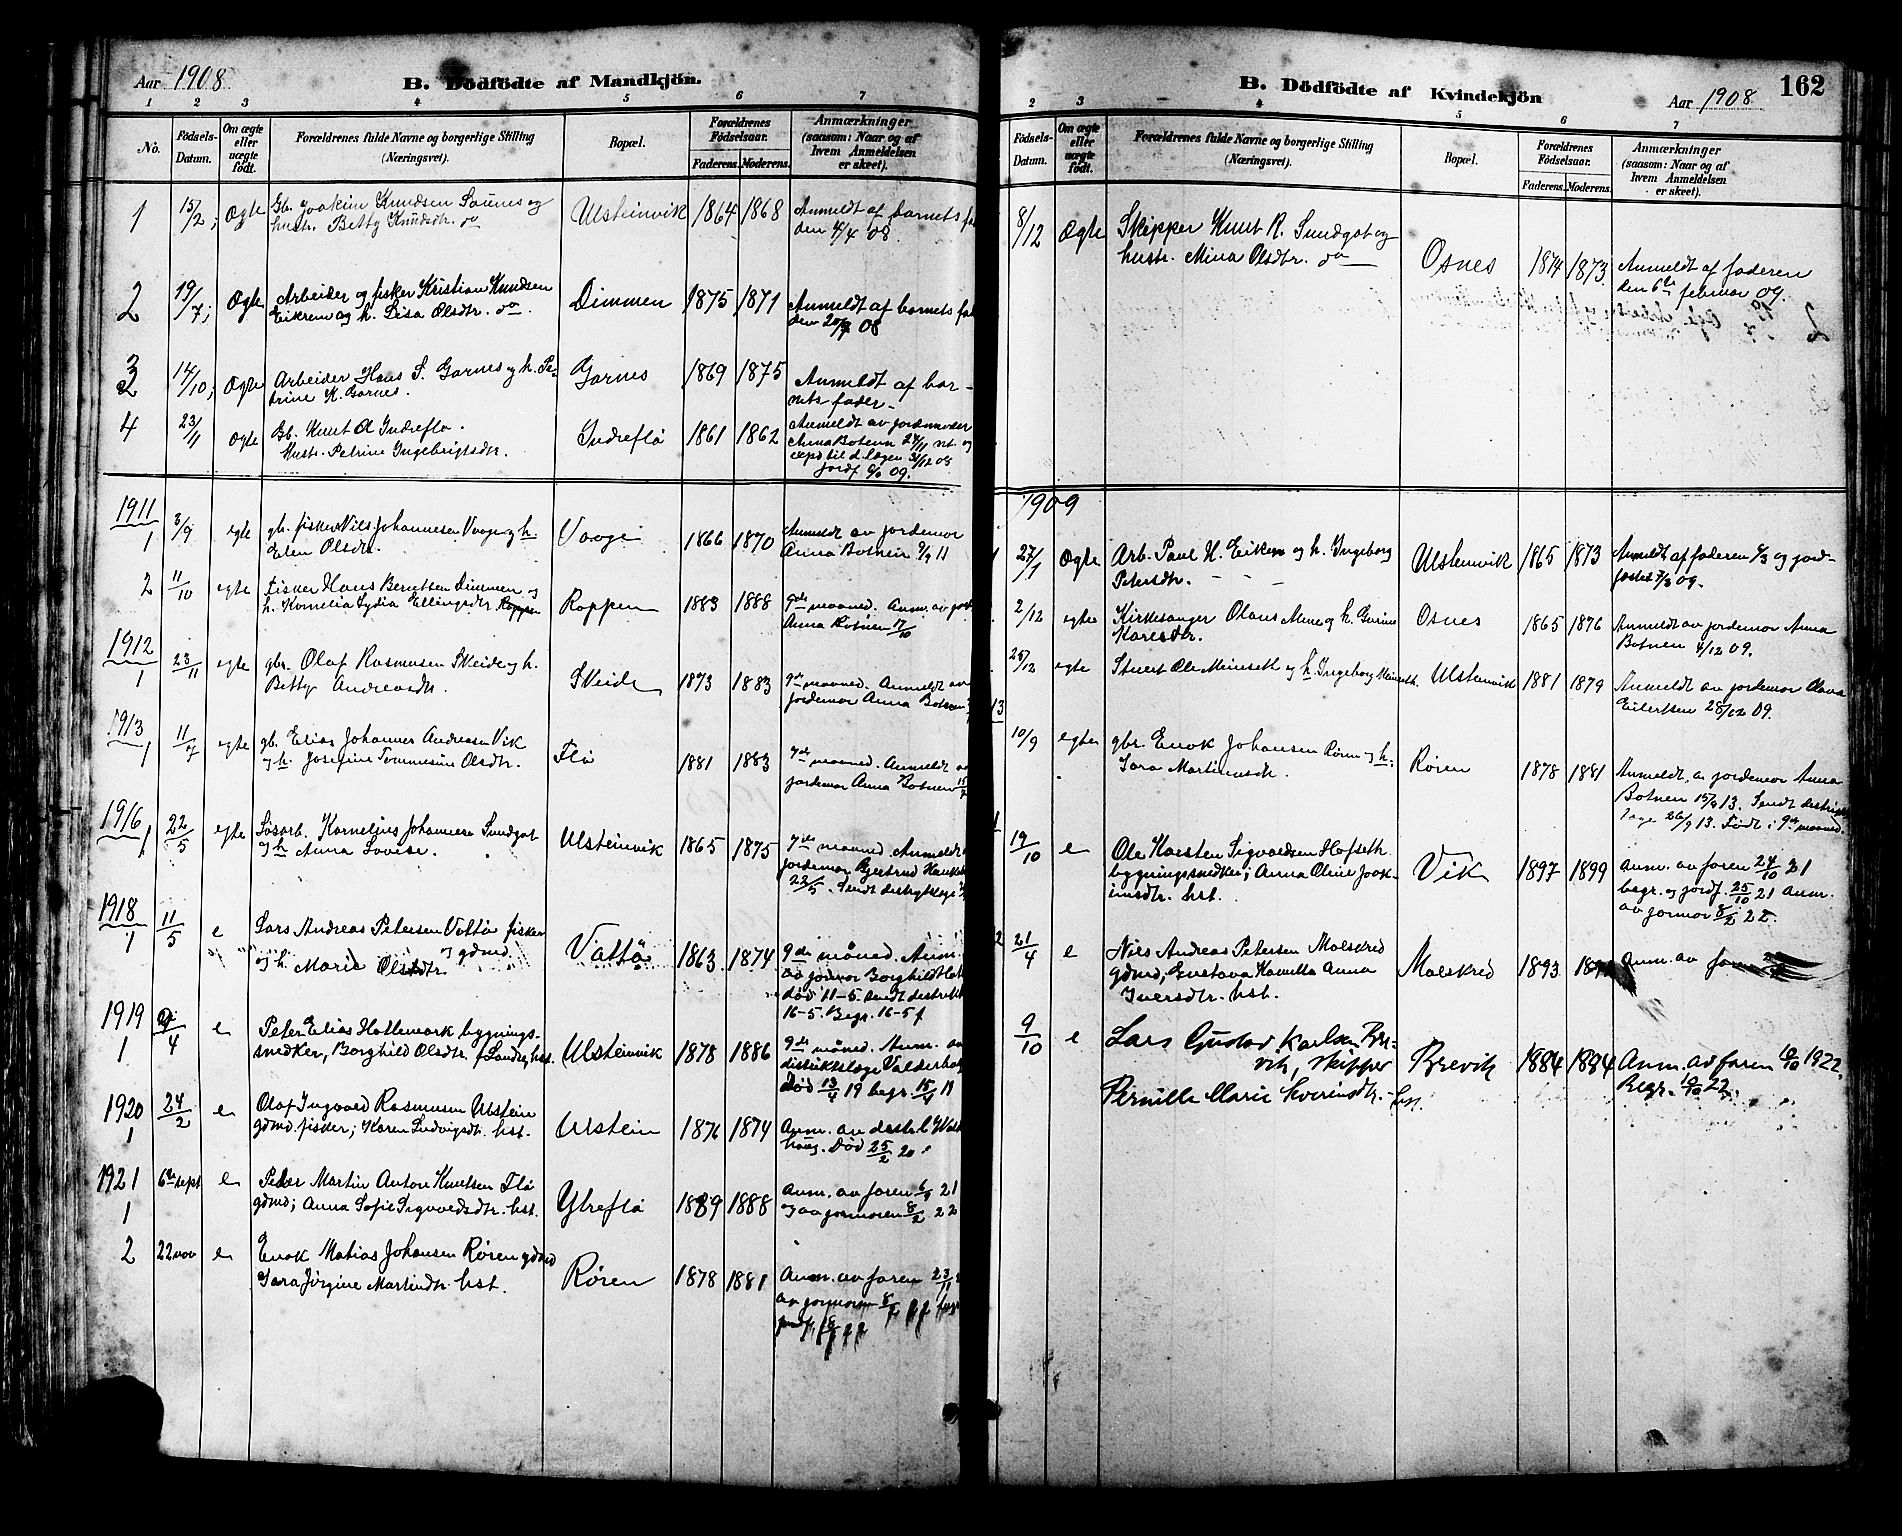 Aar 1908
B. Dödfödte af Mandkjön.
1 2 3 4 5 6 7
No.
Födsels-Datum.
Om ægte eller uægte födt.
Forældrenes fulde Navne og borgerlige Stilling (Næringsvei).
Bopæl.
Forældrenes Födselsaar.
Faderens. Moderens.
Anmærkninger (saasom: Naar og af hvem Anmeldelsen er skeet).
1 15/2; Ægte Gb. Joakim Knudsen Saunes og Ulsteinvik 1864 1868 Anmeldt af barnets fa
hustr. Betty Knudsdtr. do den 4/4 08.
2 19/7; Ægte Arbeider og fisker Kristian Knudsen Dimmen 1875 1871 Anmeldt af barnets fa
Eikrem og h. Lisa Olsdtr. do. den 20/7 08
3 14/10; Ægte Arbeider Hans S. Garnes og h. Pe- Garnes 1869 1875 Anmeldt af bar-
trine K. Garnes. nets fader.
4 23/11 Ægte Gb. Knut A Indreflø. Indreflø 1861 1862 Anmeldt av jordemoder
Hustr. Petrine Ingebrigtsdtr. Anna Botnen 24/11 nt. og
til d. lægen 31/12 08
jordf. 09.
1911
1 3/9 egte gb. fisker Nils Johannesen Vaage og h. Vaage 1866 1870 Anmeldt av jordemor
Elen Olsdtr. Anna Botnen 9/9 11
2 11/10 egte Fisker Hans Berntsen Dimmen og Roppen 1883 1888 9de maaned. Anm. av jord
h. Kornelia Lydia Ellingsdtr Roppen Anna Botnen 17/10
1912
1 23/11 egte gbr. Olaf Rasmusen Skeide og h. Skeide 1873 1883 9de maaned. Anmeldt av
Betty Andreasdtr. jordemor Anna Botnen
1913
1 11/7 egte gb. Elias Johannes Andreasen Vik Flø 1881 1883 7de maaned. Anmeldt av
og h. Josefine Tommesine Olsdtr. jordemor Anna Botnen 15/7
1916
1 22/5 egte Løsarb. Kornelius Johannesen Sundgot Ulsteinvik 1865 1875 7de maaned. Anmeldt
og h Anna Lovise. jordemor Gjertrud
22/5. Sendt
1918
1 11/5 e Lars Andreas Petersen Vattø fisker Vattø 1863 1874 9de måned. Anm.
og h. Marie Olsdtr. og gdmd. av jormor Borghild
død 11-5. Sendt distrikt
16-5. Begr. 16-5 f
1919
1 9/4 e Peter Elias Hattemark bygnings- Ulsteinvik 1878 1886 9de måned. Anm. av
snedker, Borghild Olsdtr f. Sandø, hst. distriktslæge Valderhaug
Død 13/4 19 begr. 15/4 19
1920
1 24/2 e Olaf Ingvard Rasmusen Ulstein Ulstein 1876 1874 Anm. av destr.l Wal
gdmd. fisker; Karen Ludvigsdtr. hst. haug. Død 25/2 20
1921
1 6te sept e Peder Martin Antoni Knutsen Flø Ytreflø 1889 1888 Anm. av faren 6/9 21
gdmd; Anna Sofie Sigvoldsdtr. hst. og av jormoren 8/2 22
2 22 nov e Enok Matias Johansen Røren gdmd Røren 1878 1881 Anm. av faren 23/11
Sara Jørgine Martindtr. hst. av jormoren 8/2
B. Dödfödte af Kvindekjön
Aar 1908
162
2 3 4 5 6 7
Födsels-Datum.
Om ægte eller uægte födt.
Forældrenes fulde Navne og borgerlige Stilling (Næringsvei).
Bopæl.
Forældrenes Födselsaar.
Faderens. Moderens.
Anmærkninger (saasom: Naar og af hvem Anmeldelsen er skeet).
8/12 Ægte Skipper Knut R. Sundgot og Osnes 1874 1873 Anmeldt af faderen
hustr. Mina Olsdtr. do den 6te februar 09.
1909
1 27/1 Ægte Arb. Paul H. Eikrem og h. Ingeborg Ulsteinvik 1865 1873 Anmeldt af faderen 6/3 og jord-
Petersdtr. fæstet 7/3 09.
2/12 egte Kirkesanger Olaus Mene og h. Gurine Osnes 1865 1876 Anmeldt av jordemor Anna
Karesdtr. Botnen 4/12 09.
25/12 egte Stuert Ole Meinseth og h Ingeborg Meinseth. Ulsteinvik 1881 1879 Anmeldt av jordemor Olava
Eilertsen 28/12 09.
13
10/9 egte gbr. Enok Johansen Røren og h: Røren 1878 1881 Anmeldt av jordemor Anna
Sara Martinusdtr. Botnen 15/9 13. Sendt destrikts
læge 26/9 13. Født i 9de maaned.
1 19/10 e Ole Karsten Sigvaldsen Hofseth Vik 1897 1899 anm. av faren 24/10 21
bygningssnedker; Anna Oline Joak- begr. og jordf. 25/10 21 Anm.
imsdtr. hst. av jormor 8/2 22.
2 21/4 e Nils Andreas Petersen Molskred Molskred 1893 Anm. av faren
gdmd, Gustava Kamilla Anna
Iversdtr. hst.
9/10 e Lars Gustav Karlsen Bre- Brevik 1884 1884 Anm. av faren 10/10 1922
vik, skipper Begr. 10/10 22.
Pernille Marie Severinsdtr. hst.